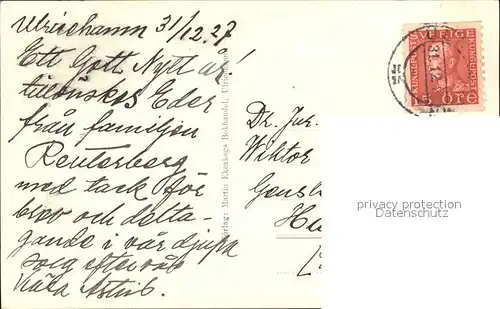 Ulricehamn 31/12.27
Ett Gott Nytt år
tillönskas Eder
från familjen
Reuterberg
med tack för
brev och delta-
gande i vår djupa
sorg efter vår
kära Astrid.
Förlag: Martin Ekeskogs Bokhandel,
SVERIGE
KUNGL. POST
15 ÖRE
31.12
Dr. Jur.
Wiktor
privacy protection
Datenschutz